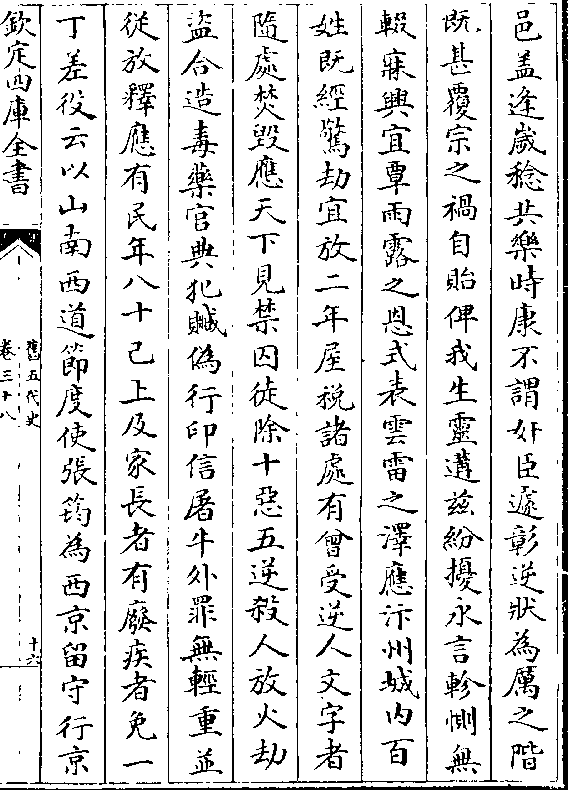 邑盖逢歲稔共樂時康不謂奸臣遽彰逆狀為厲之階
既甚覆宗之禍自貽俾我生靈遘兹紛擾永言軫惻無
輟寐興宜覃雨露之恩式表雲雷之澤應汴州城内百
姓既經驚劫宜放二年屋税諸處有曾受逆人文字者
隨處焚毁應天下見禁囚徒除十惡五逆殺人放火劫
盜合造毒藥官典犯贓偽行印信屠牛外罪無輕重並
從放釋應有民年八十已上及家長者有廢疾者免一
丁差役云以山南西道節度使張筠為西京留守行京
欽定四庫全書
舊五代史
卷三十八
十六